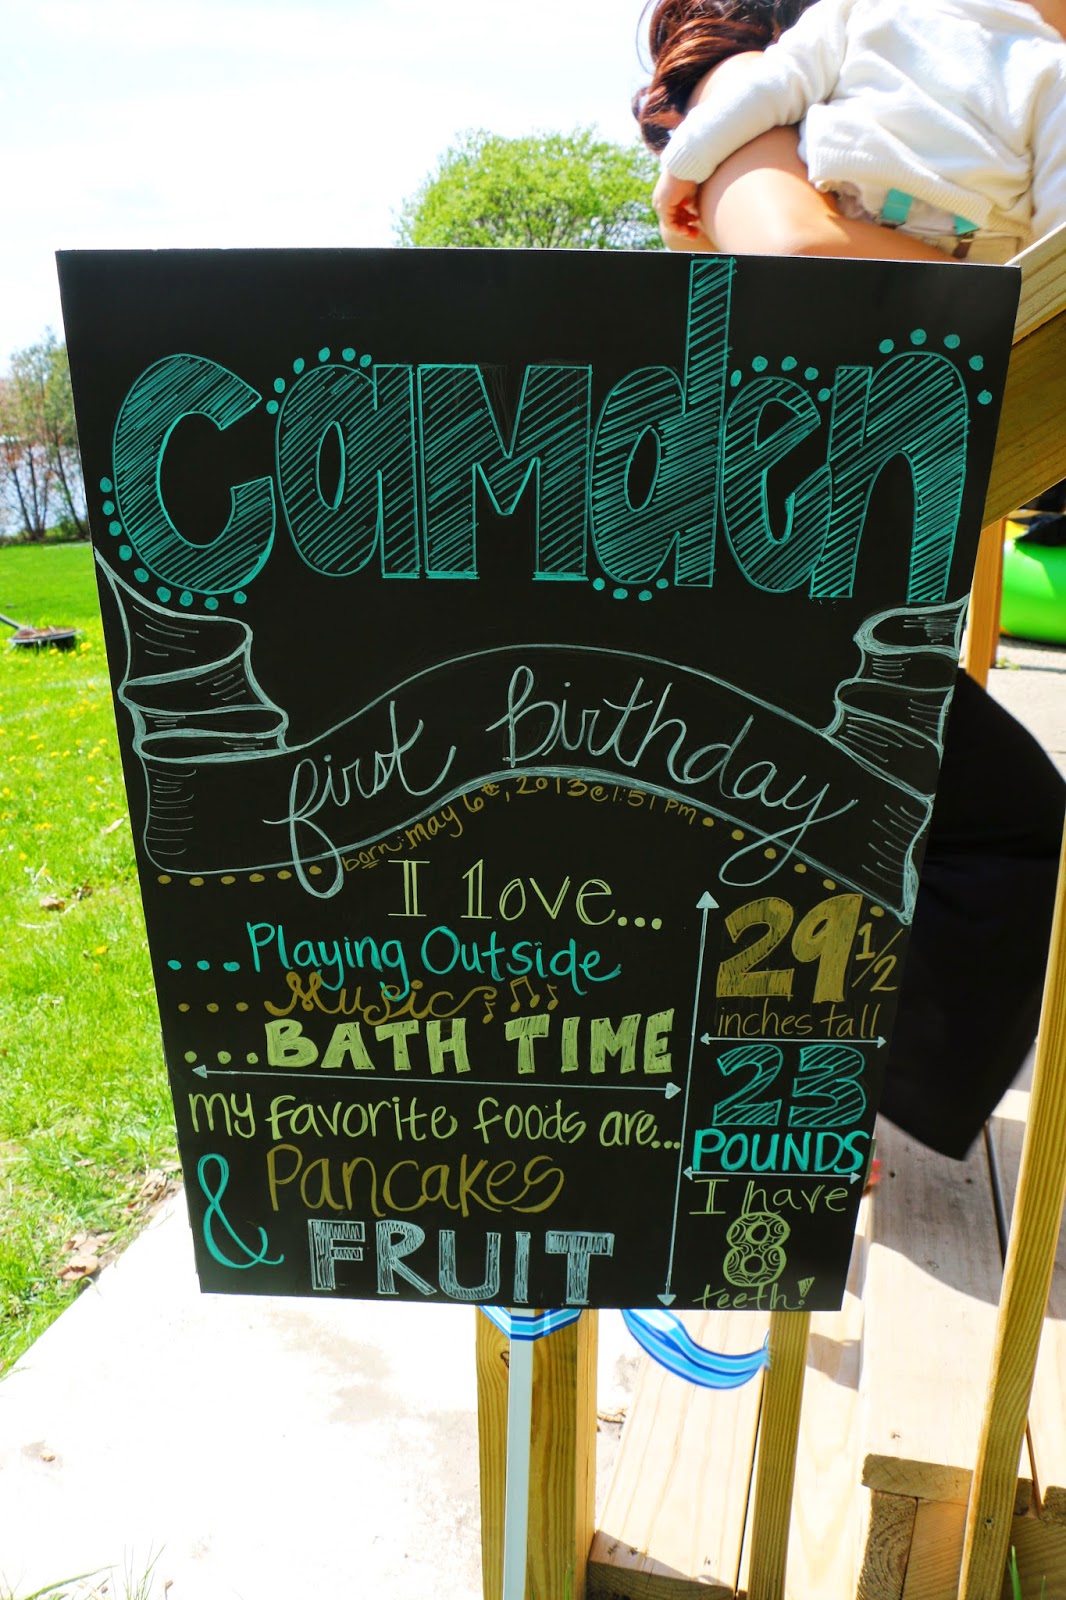 Camden
first birthday
born: may 6th, 2013 @ 1:51 pm
I love...
....Playing Outside
....Music
...BATH TIME
my favorite foods are...
Pancakes
& FRUIT
29 1/2
inches tall
23
POUNDS
I have
8
teeth!